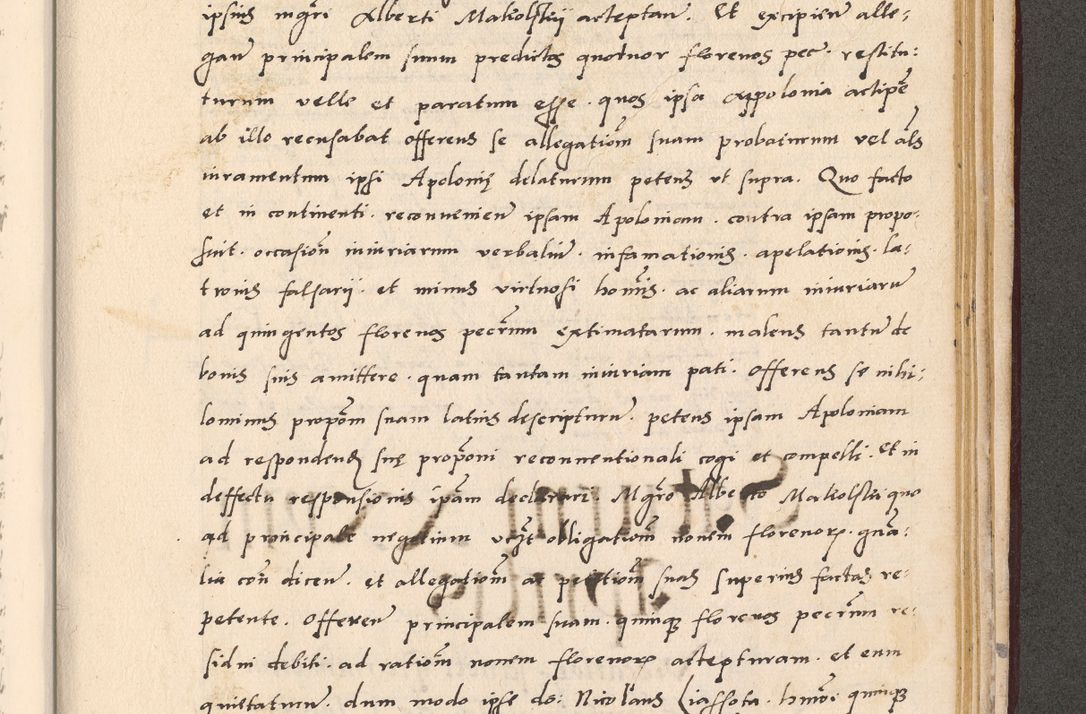 ipsius mgri Alberti Makolskii acceptan. Et excipien alle-
gan principalem suum predictos quotuor florenos pec. restitu:
turum velle et paratum esse. quos ipsa Appolonia accipe
ab illo recusabat offerens se allegationem suam probaturum vel als
iuramentum ipsi Apolonię delaturum petens ut supra. Quo facto
et in continenti. reconvenien ipsam Apoloniam. contra ipsam propo-
suit. occasion iniuriarum verbaliu. infamationis. apelationis. la-
tronis falsarii. et minus virtuosi hominis. ac aliarum iniuriaru
ad quingentos florenos pecrum extimatarum. malens tantu de
bonis suis amittere. quam tantam iniuriam pati. Offerens se nihi-
lominus propom suam latius descripturu. petens ipsam Apoloniam
ad respondend suę proponi reconventionali cogi et compelli. Et in
deffectu responsionis ipam declarari. Mgro Alberto Makolskii quo
ad principale negotium ucyt obligationem nonem florenorum. quā-
lia con dicen. et allegationem ac petitionem suas superius factas re-
petente. Offeren principalem suum. quinque florenos pecrum re-
sidui debiti. ad rationem nonem florenorum accepturam. et eum
quietaturu. dum modo ipse do: Nicolaus Liassota. hmoi quinque